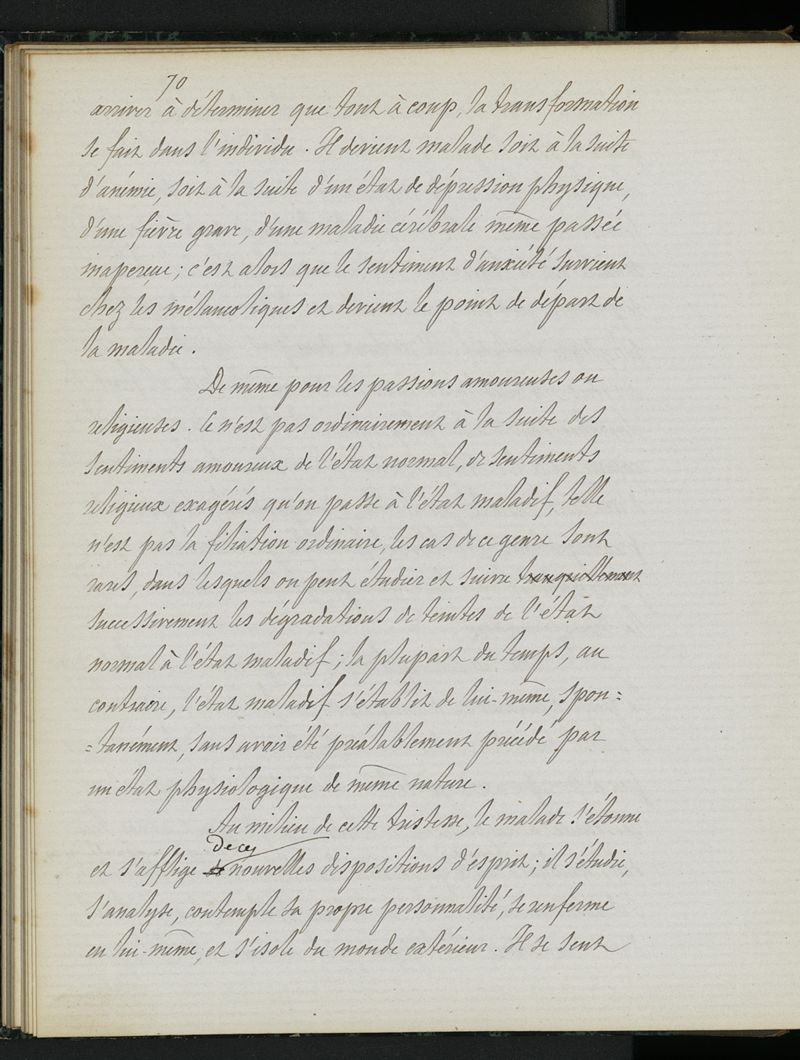 70
arriver à déterminer que tout à coup, la transformation
se fait dans l'individu. Il devient malade soit à la suite
d'anémie, soit à la suite d'un état de dépression physique,
d'une fièvre grave, d'une maladie cérébrale même passée
inaperçue ; c'est alors que le sentiment d'anxiété survient
chez les mélancoliques et devient le point de départ de
la maladie.
De même pour les passions amoureuses ou
religieuses. Ce n'est pas ordinairement à la suite des
sentiments amoureux de l'état normal, de sentiments
religieux exagérés qu'on passe à l'état maladif, telle
n'est pas la filiation ordinaire, les cas de ce genre sont
rares, dans lesquels on peut étudier et suivre tranquillement
successivement les dégradations de teintes de l'état
normal à l'état maladif ; la plupart du temps, au
contraire, l'état maladif s'établit de lui-même, spon=
=tanément, sans avoir été préalablement précédé par
un état physiologique de même nature.
Au milieu de cette tristesse, le malade s'étonne
de ces
et s'afflige de nouvelles dispositions d'esprit ; il s'étudie,
s'analyse, contemple sa propre personnalité, se renferme
en lui-même, et s'isole du monde extérieur. Il se sent